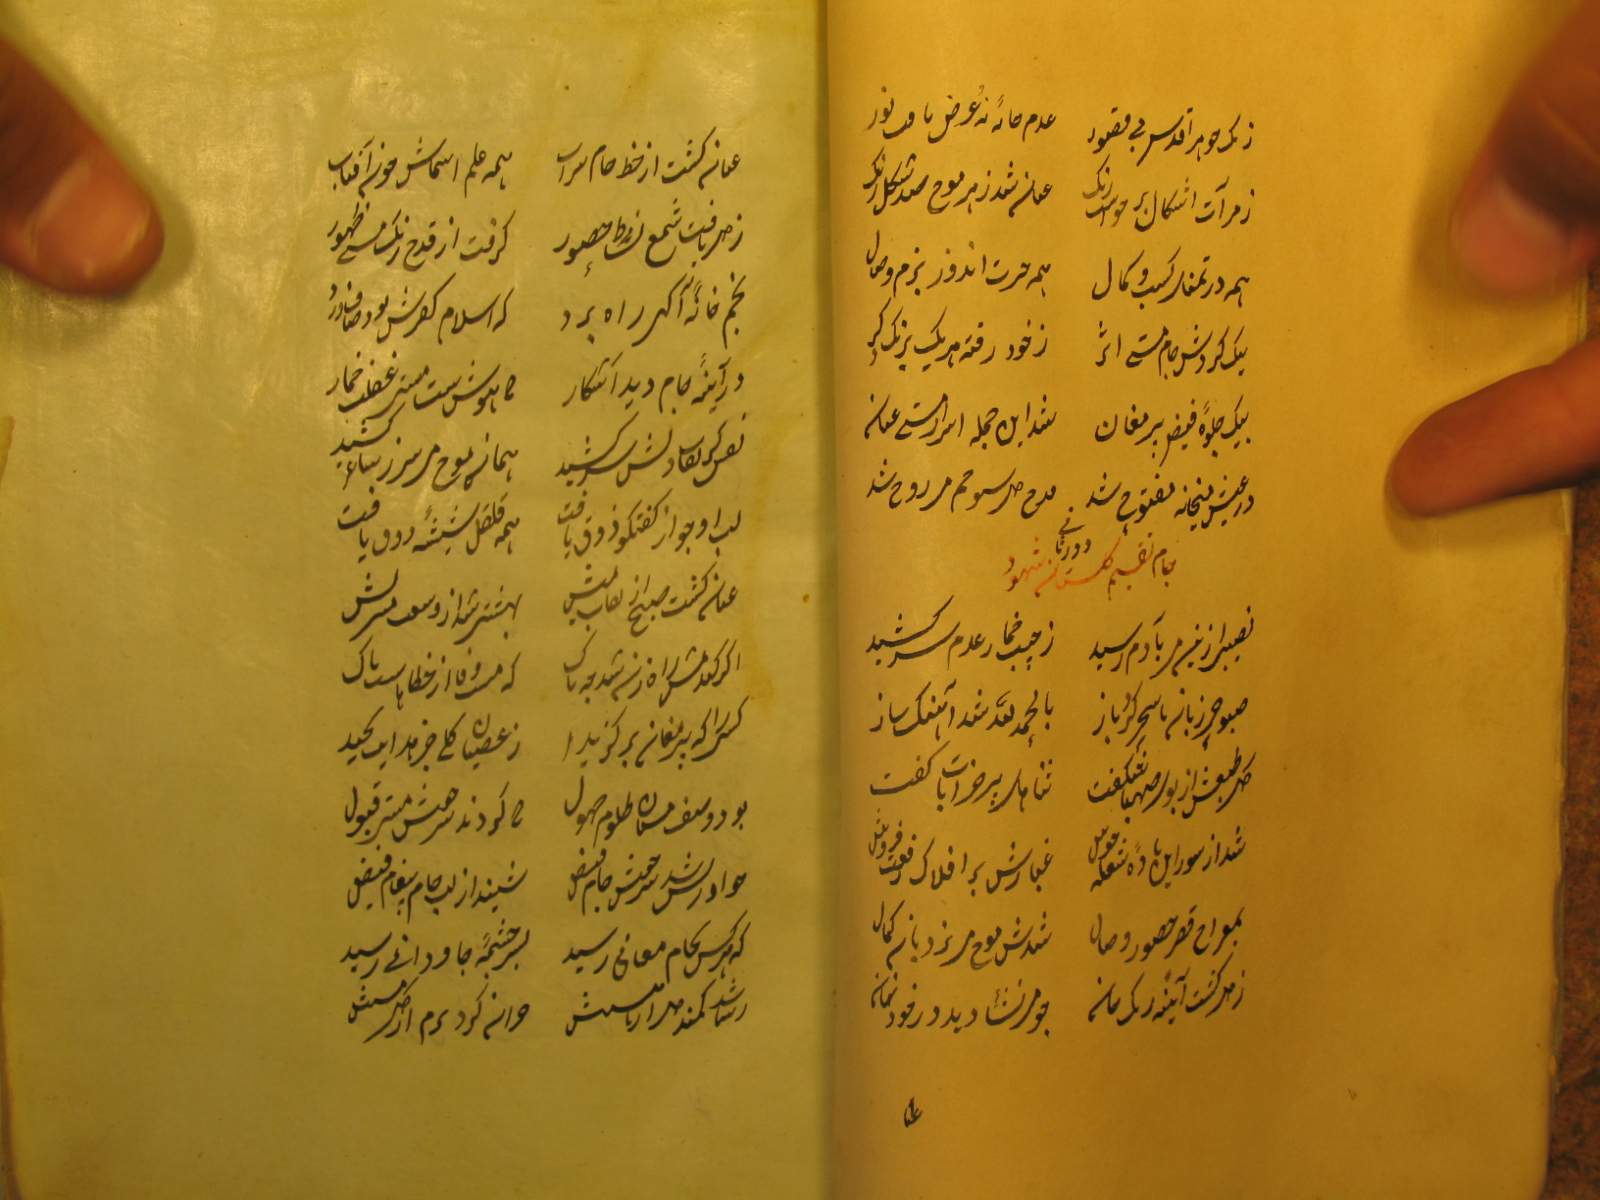 ز یک جوهر اقدس بی قصور عدم خانهٔ نه عرض یافت نور
ز مرآت اشکال پر جوش رنگ عیان شد ز هر موج صد شکل رنگ
همه در تمنای کسب و کمال همه حیرت اندوز بزم وصال
بیک گردش جام مستی اثر ز خود رفته هر یک برنگ دگر
بیک جلوهٔ فیض پیر مغان شد این جمله اسرار مستی عیان
در عیش میخانه مفتوح شد قدح دل سبو جسم می روح شد
جام تقسیم گلستان شهود
نصیبی ازین می بآدم رسید ز جیب خمار عدم سر کشید
صبوحی زبان با سحر کرد باز بالحمد لله شد آهنگ ساز
گل طبعش از بوی صهبا شکفت ثناهای پیر خرابات گفت
شد از سور این بادهٔ شعله جوش غبارش بر افلاک رفعت فروش
بمعراج قصر حضور وصال شدش موج می نردبان کمال
ز دل گشت آیینه رنگ جهان چو می نشأ دید در خود نهان
عیان گشت از خط جام شراب همه علم اسماش چون آفتاب
ز دل یافت شمع نشاط حضور گرفت از قدح رنگ مستی ظهور
بخمخانهٔ آگهی راه برد که اسلام کفرش بود صاف و درد
در آیینهٔ جام دید آشکار که هوش ست مستی غفلت خمار
نفس کز نقاب دلش سر کشید همان موج می سر ز مینا کشید
لب او چو از گفتگو ذوق یافت همه قلقل شیشهٔ ذوق یافت
عیان گشت صبح از نقاب لبش بهشتی شد از وسعت مشربش
اگر گندمش راه زن شد چه باک که مست وفا از خطاهاست پاک
کسی را که پیر مغان برگزید ز عصیان گلی جز هدایت نچید
بود وصف مستان ظلوم و جهول که کردند سرجوش مستی قبول
چو آدم شد سرخوش جام فیض شنید از لب جام پیغام فیض
که هر کس بجام معانی رسید بسر چشمهٔ جاودانی رسید
رسا شد کمند دل از تابش چراغان کرد بزم از گل مستیش